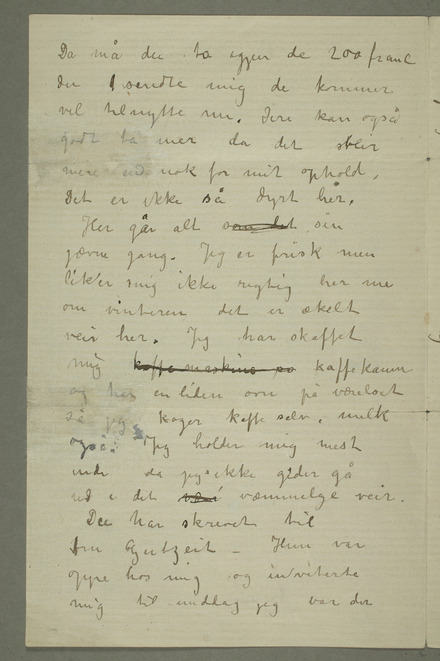 Da må du ta igjen de 200 franc
du sendte mig de kommer
vel tilnytte nu. Dere kan også
godt ta mer da det bler
mere end nok for mit ophold,
Det er ikke så dyrt her.
Her går alt som det sin
jævne gang. Jeg er frisk men
liker mig ikke rigtig her nu
om vinteren det er ækelt
veir her. Jeg har skaffet
mig kaffemaskine og kaffekanne
og har en liden ovn på værelset
så jeg koger kaffe selv. melk
også. Jeg holder mig mest
inde da jeg ikke gider gå
ud i det væmmelige veir.
Du har skrevet til
fru Gutzeit – Hun var
oppe hos mig og inviterte
mig til middag jeg var der